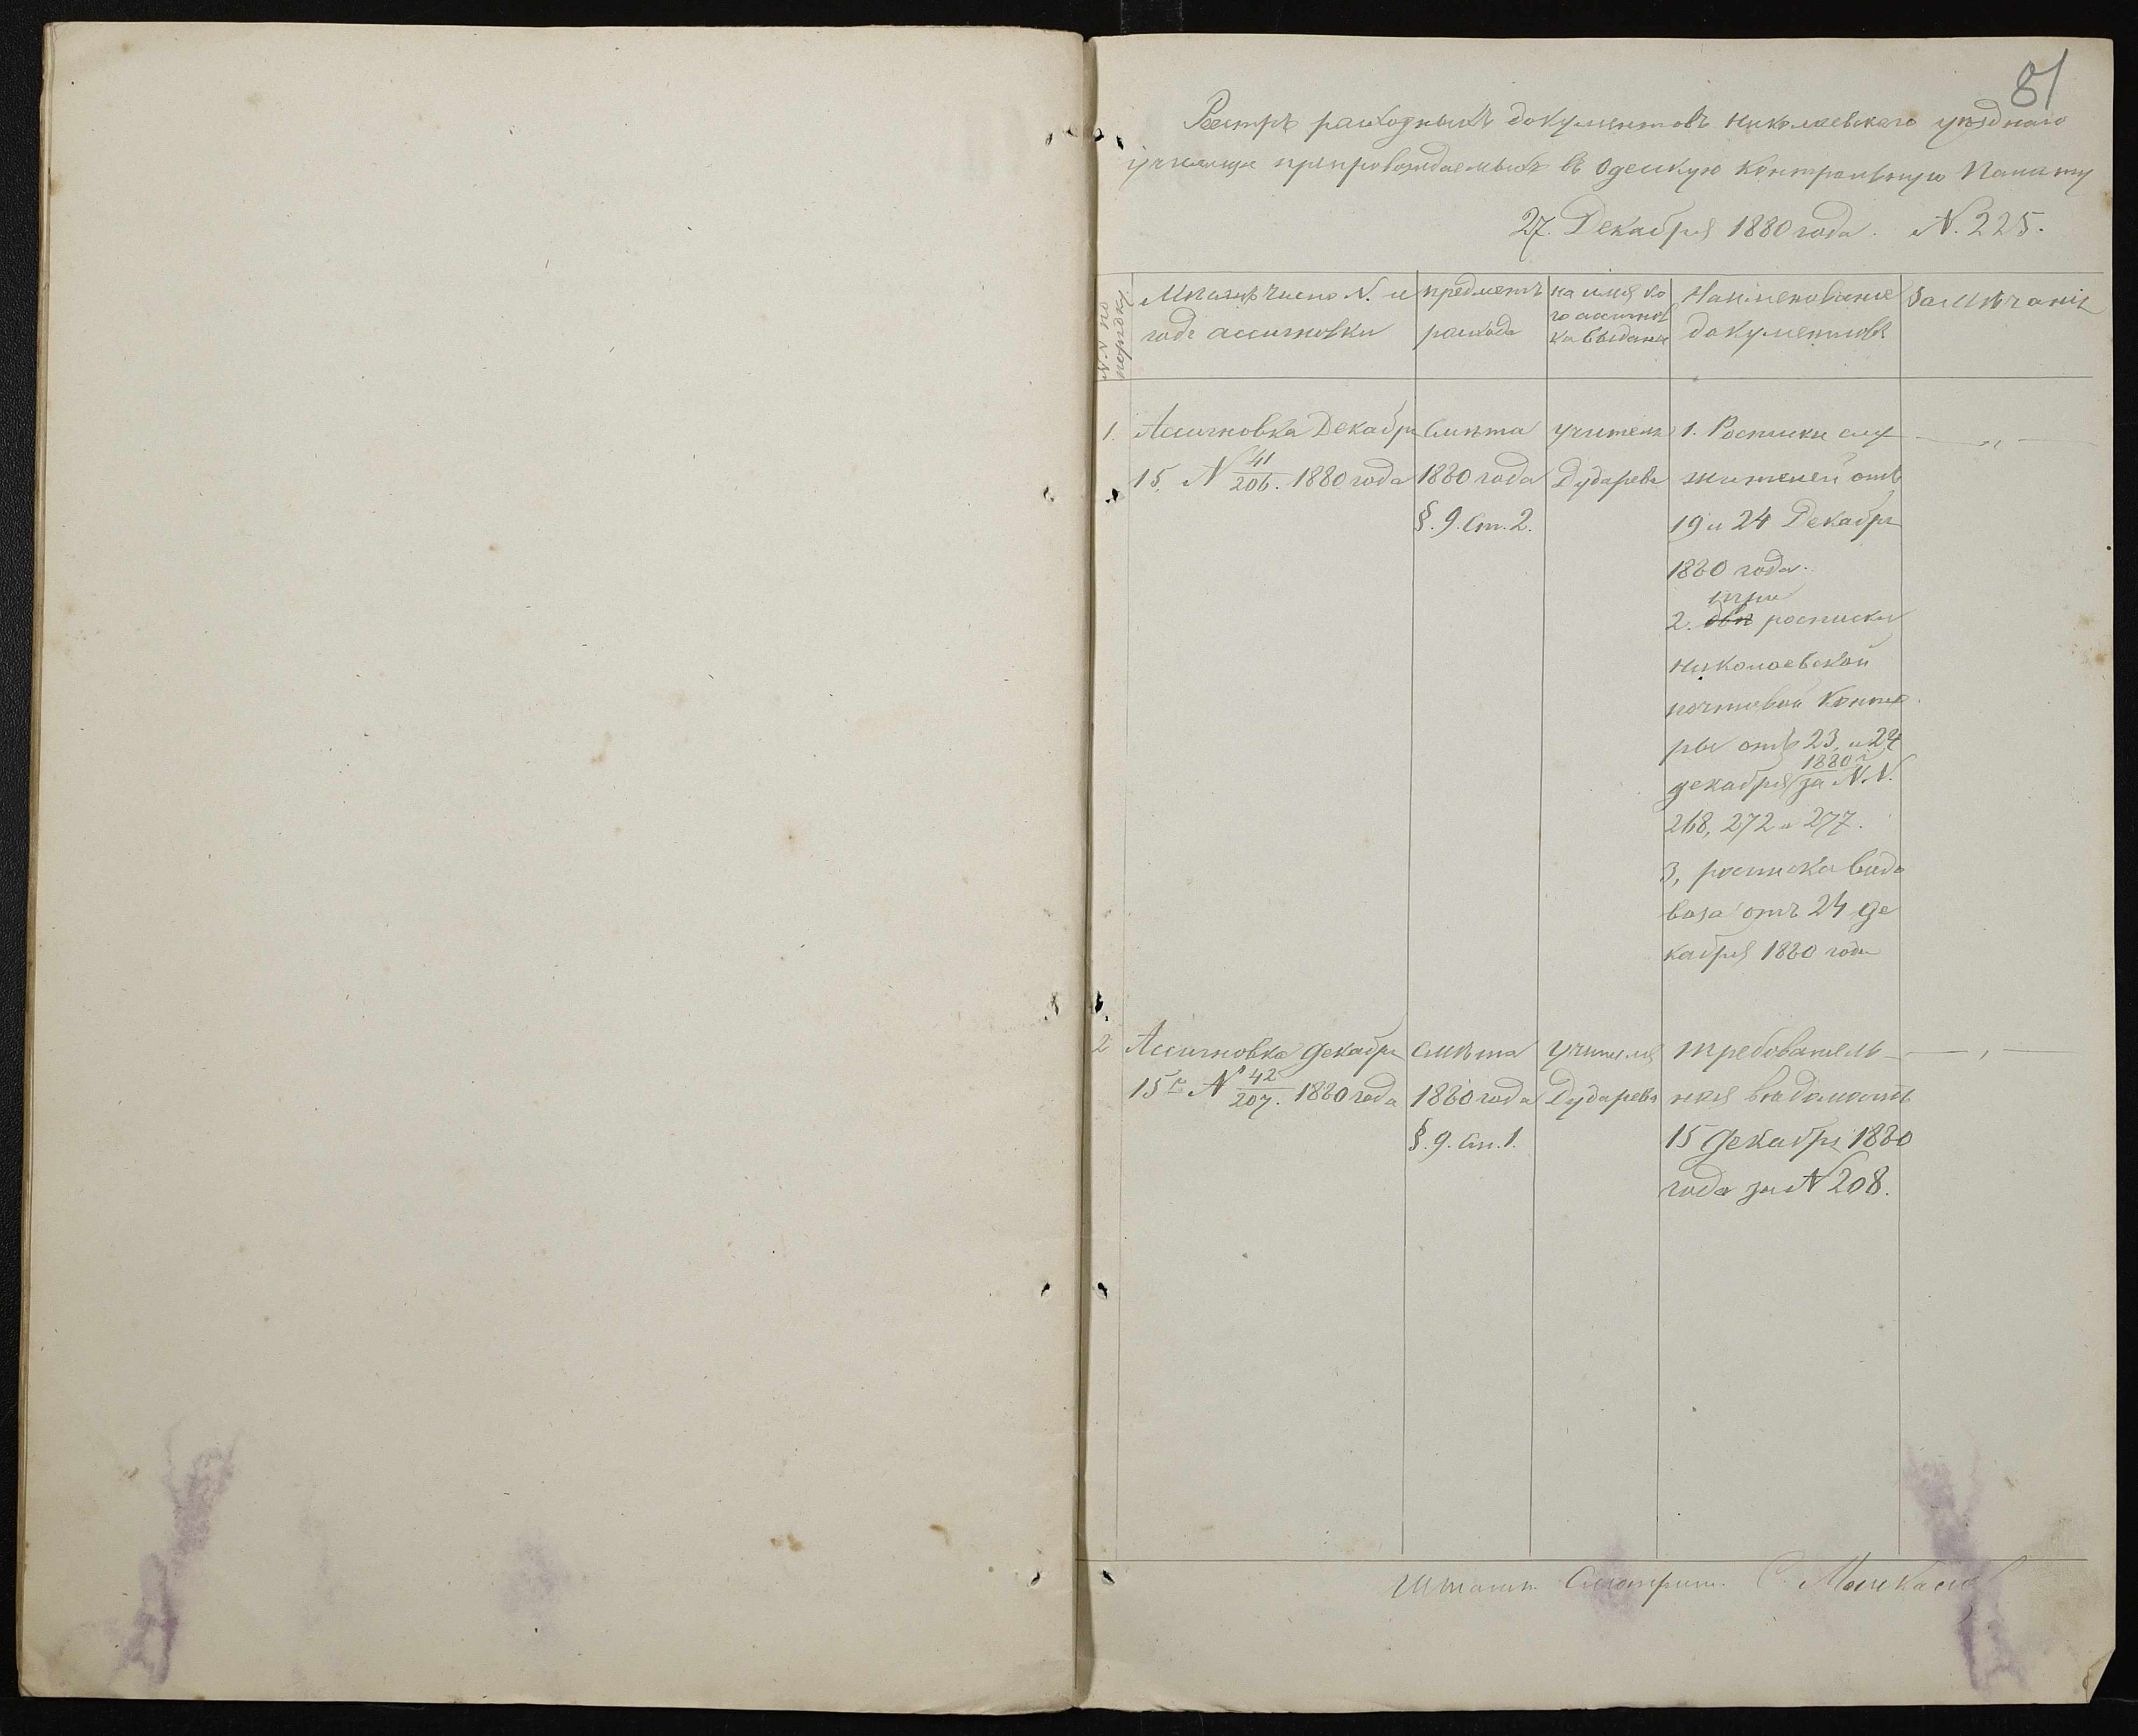 81
Реестръ расходныхъ документовъ Николаевскаго уѣзднаго
училища препровождаемыхъ въ Одесскую Контрольную Палату
27. Декабря 1880 года. N. 225.
N.N по порядку.
Мѣсяцъ число N. и
годъ ассигновки
предметъ
расхода
на имя ко
го ассигнов
ка выдана
Наименованіе
документовъ
Замѣчаніе
1. Ассигновка Декабря
15. N 41/206. 1880 года
Смѣта
1880 года
§. 9. Ст. 2.
учителя
Дударева
1. Росписки слу
жителей отъ
19 и 24 Декабря
1880 года.
три
2. двѣ росписки
Николаевской
почтовой Конто
ры отъ 23, и 24
1880 г
декабря за N.N.
268, 272 и 277.
3, росписка
отъ 24 де
кабря 1880 года
— „ —
2 Ассигновка декабря
15 г. N 42/207. 1880 года
Смѣта
1880 года
§. 9. Ст. 1.
учителя
Дударева
требователь
ная вѣдомость
15 декабря 1880
года за N 208.
— „ —
Штатн. Смотрит. С.